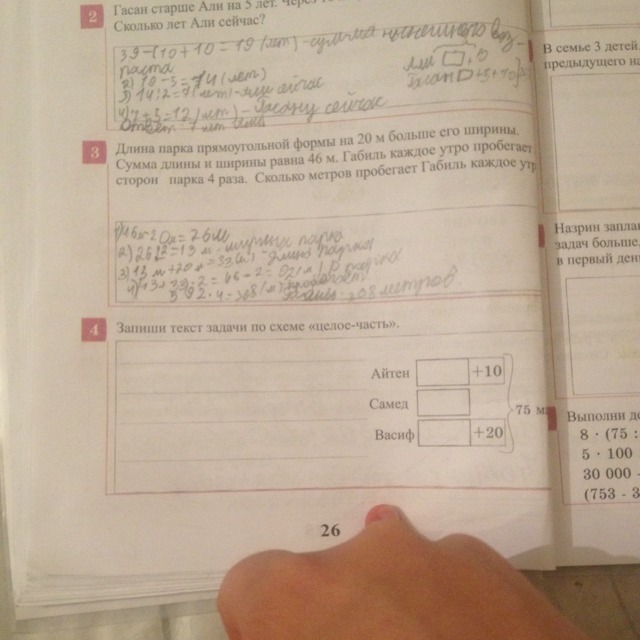 2 Гасан старше Али на 5 лет. Через
Сколько лет Али сейчас?
39-(10+10=19 (лет) -сумма нынешнего воз-
раста
2) 19-5=14 (лет)
3) 14:2=7 (лет) -Али сейчас
4) 7+5=12 (лет) -Гасану сейчас
Ответ: 7 лет
Али
Гасан +5+10
3 Длина парка прямоугольной формы на 20 м больше его ширины.
Сумма длины и ширины равна 46 м. Габиль каждое утро пробегает
сторон парка 4 раза. Сколько метров пробегает Габиль каждое ут
1) 46м-20м=26м
2) 26:2=13 м -ширина парка
3) 13 м+20 м=33(м) -длина парка
368 метров
4 Запиши текст задачи по схеме «целое-часть».
Айтен +10
Самед
Васиф +20
75 м
26
В семье 3 детей.
предыдущего на
Назрин заплан
задач больше,
в первый ден
Выполни де
8 · (75 :
5 · 100
30 000 -
(753 - 3